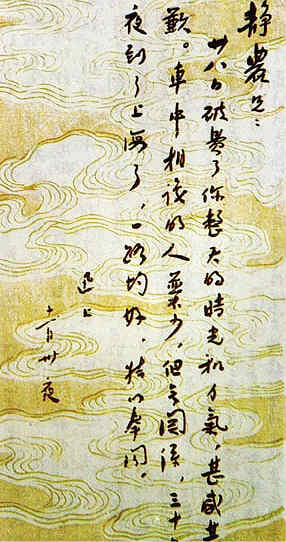 静農兄：
廿八日破費了你整天的時光和力氣，甚感且
歉。車中相識的人並不少，但無關係，三十
夜到了上海了，一路均好，特以奉聞。
迅上
十一月卅夜